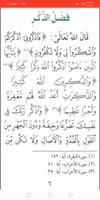 فَضْلُ الذِّكْرِ
قَالَ اللهُ تَعَالَى: ﴿فَاذْكُرُونِي أَذْكُرْكُمْ
وَاشْكُرُوا لِي وَلَا تَكْفُرُونِ﴾(١) ﴿يَا أَيُّهَا
الَّذِينَ آمَنُوا اذْكُرُوا اللهَ ذِكْرًا
كَثِيرًا﴾(٢) ﴿وَالذَّاكِرِينَ اللهَ كَثِيرًا
وَالذَّاكِرَاتِ أَعَدَّ اللهُ لَهُمْ مَغْفِرَةً
وَأَجْرًا عَظِيمًا﴾(٣) ﴿وَاذْكُرْ رَبَّكَ فِي
نَفْسِكَ تَضَرُّعًا وَخِيفَةً وَدُونَ الْجَهْرِ
مِنَ الْقَوْلِ بِالْغُدُوِّ وَالْآصَالِ وَلَا تَكُنْ
(١) سورة البقرة، آية: ١٥٢.
(٢) سورة الأحزاب، آية: ٤١.
(٣) سورة الأحزاب، آية: ٣٥.
٦